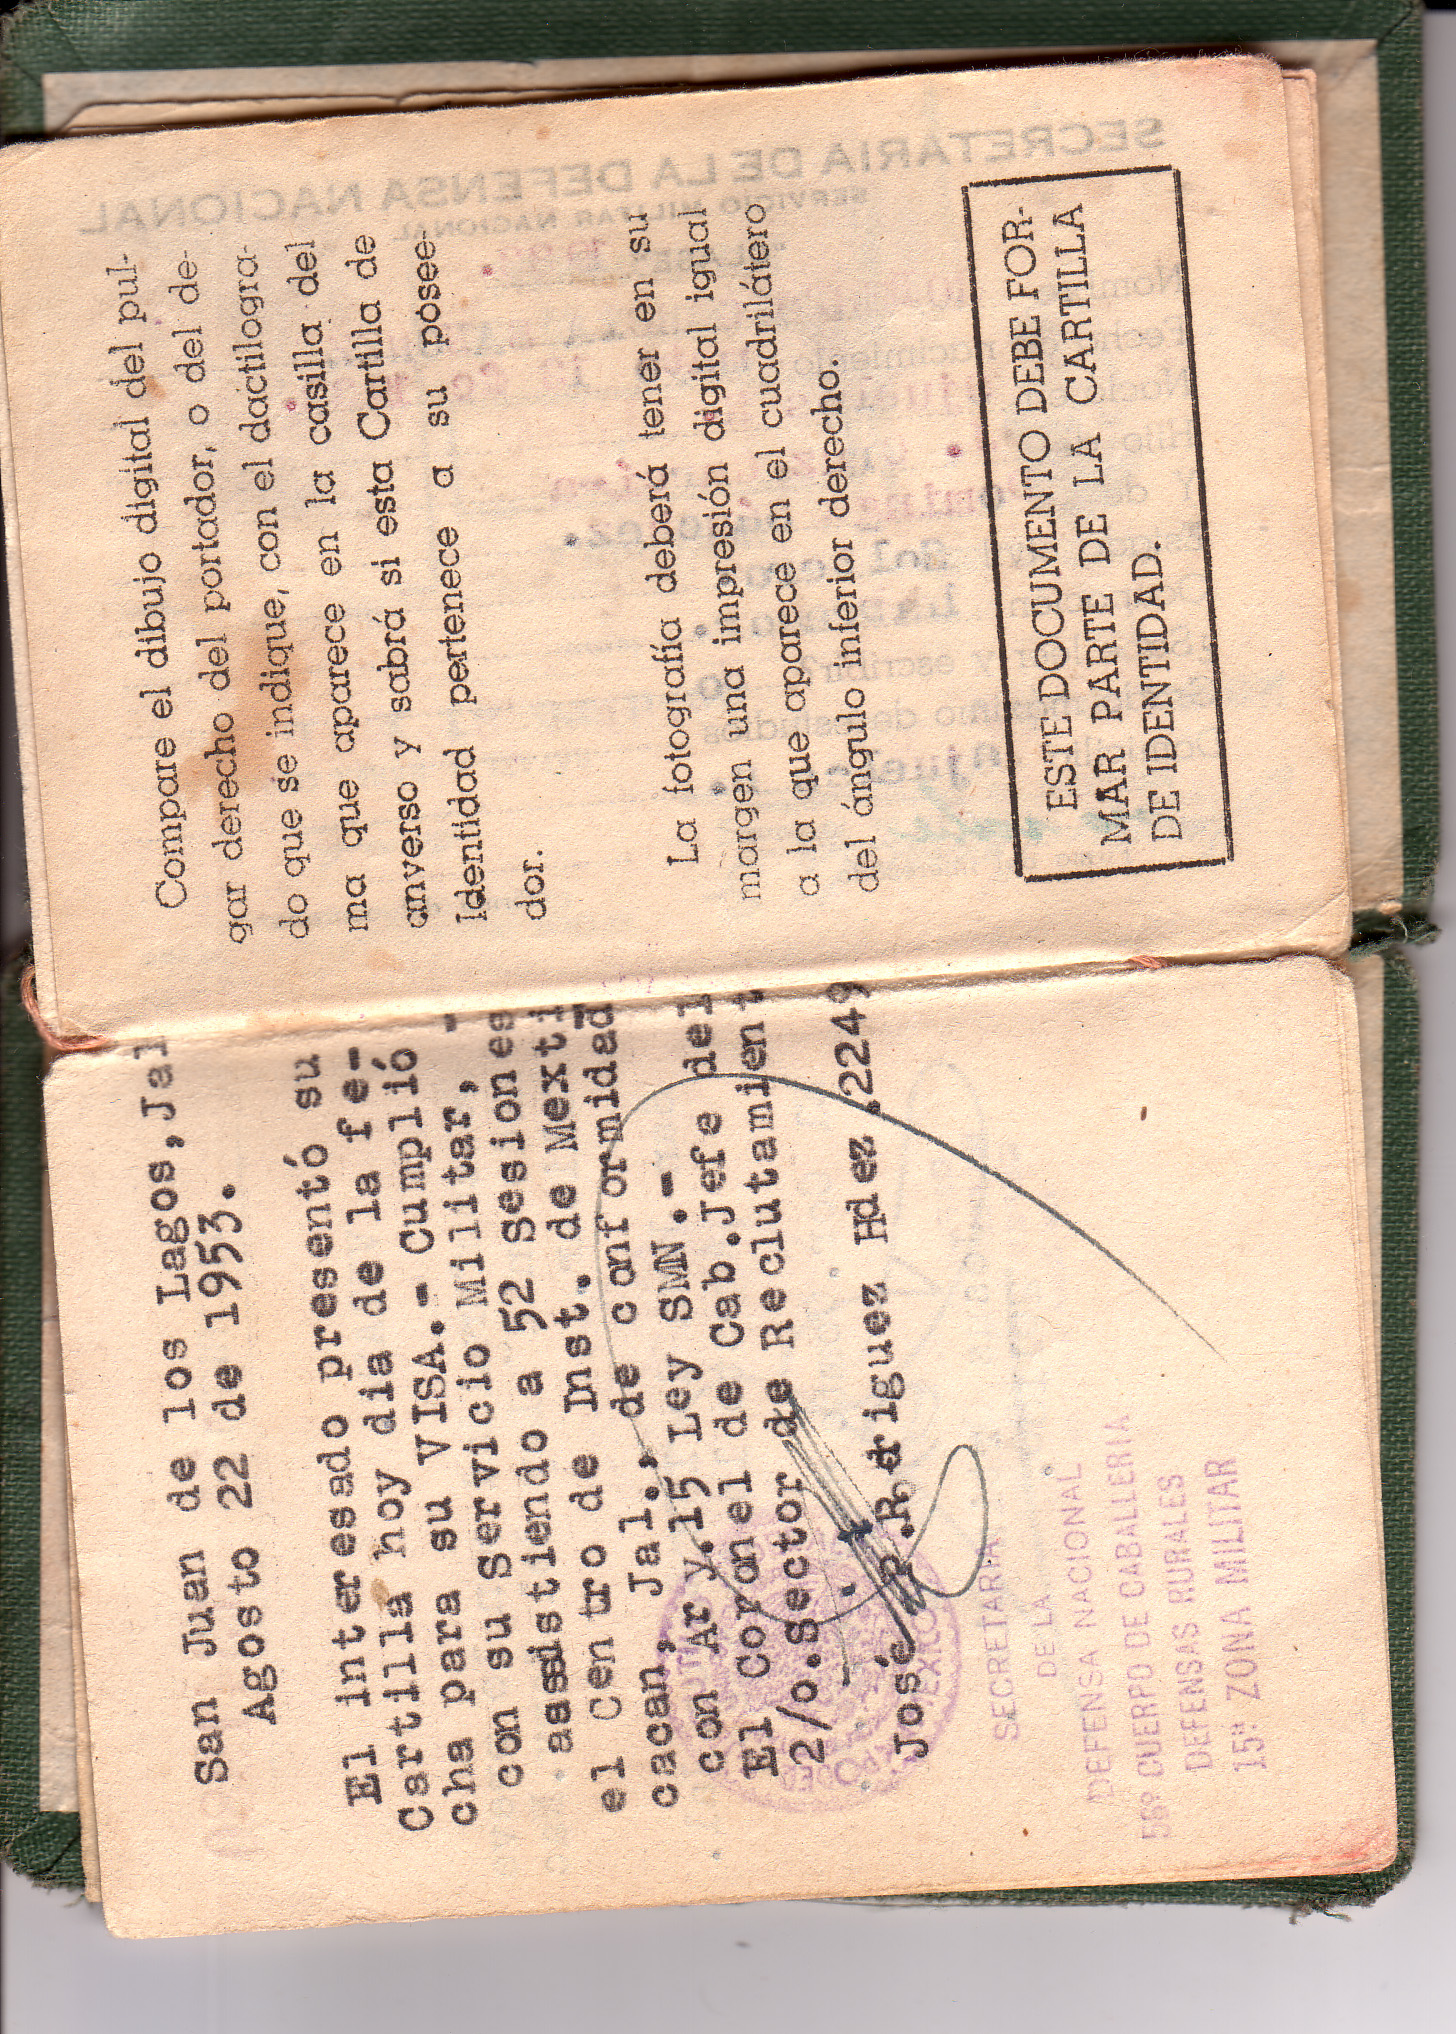 San Juan de los Lagos,Jal
Agosto 22 de 1953.
El interesado presentó su
Cartilla hoy dia de la fe-
cha para su VISA.- Cumplió
con su Servicio Militar, -
assistiendo a 52 sesiones
el Centro de Inst. de Mexti
cacan, Jal., de conformidad
con Ar y.15 Ley SMN.-
El Coronel de Cab.Jefe del
2/o.Sector de Reclutamient
José P.Rodriguez Hdez .2249
SECRETARIA
DE LA
DEFENSA NACIONAL
56º CUERPO DE CABALLERIA
DEFENSAS RURALES
15ª ZONA MILITAR
Compare el dibujo digital del pul-
gar derecho del portador, o del de-
do que se indique, con el dactilogra-
ma que aparece en la casilla del
anverso y sabrá si esta Cartilla de
Identidad pertenece a su posee-
dor.
La fotografía deberá tener en su
margen una impresión digital igual
a la que aparece en el cuadrilátero
del ángulo inferior derecho.
ESTE DOCUMENTO DEBE FOR-
MAR PARTE DE LA CARTILLA
DE IDENTIDAD.
SECRETARIA DE LA DEFENSA NACIONAL
SERVICIO MILITAR NACIONAL